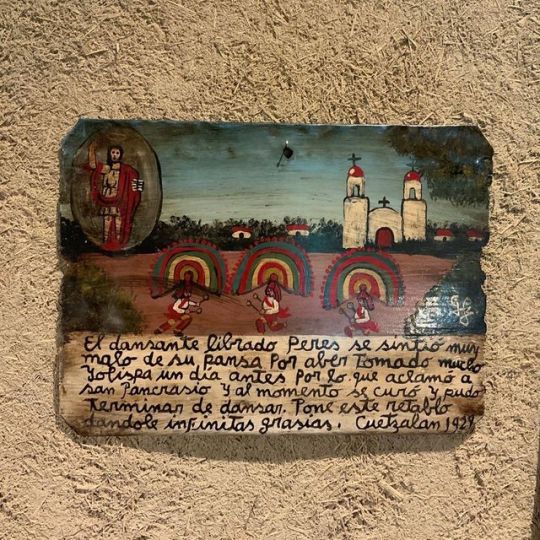 El dansante librado Peres se sintió muy
malo de su pansa Por aber Tomado mucho
Yolispa un día antes Por lo que aclamó a
san Pancrasio Y al momento se curó Y pudo
Terminar de dansar. Pone este retablo
dandole infinitas grasias. Cuetzalan 1929